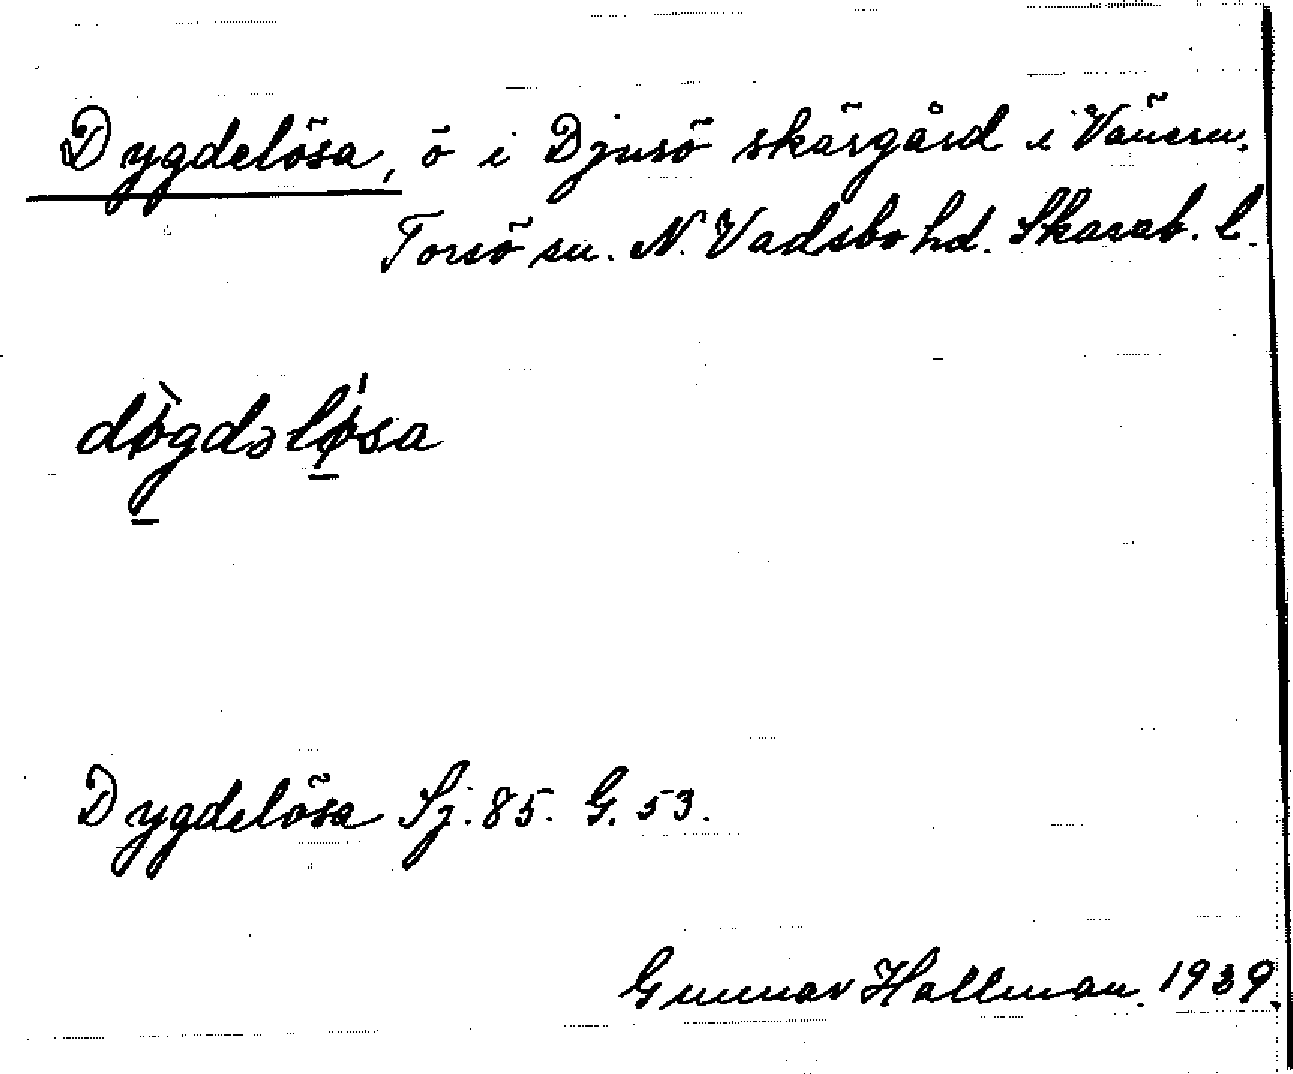 Dygdelösa, ö i Djursö skärgård i Vänern.
Torsö sn. N. Vadsbo hd. Skarab. l.
dø̀gdəlø̍sa
Dygdelösa Sj. 85. G. 53.
Gunnar Hallman. 1939.